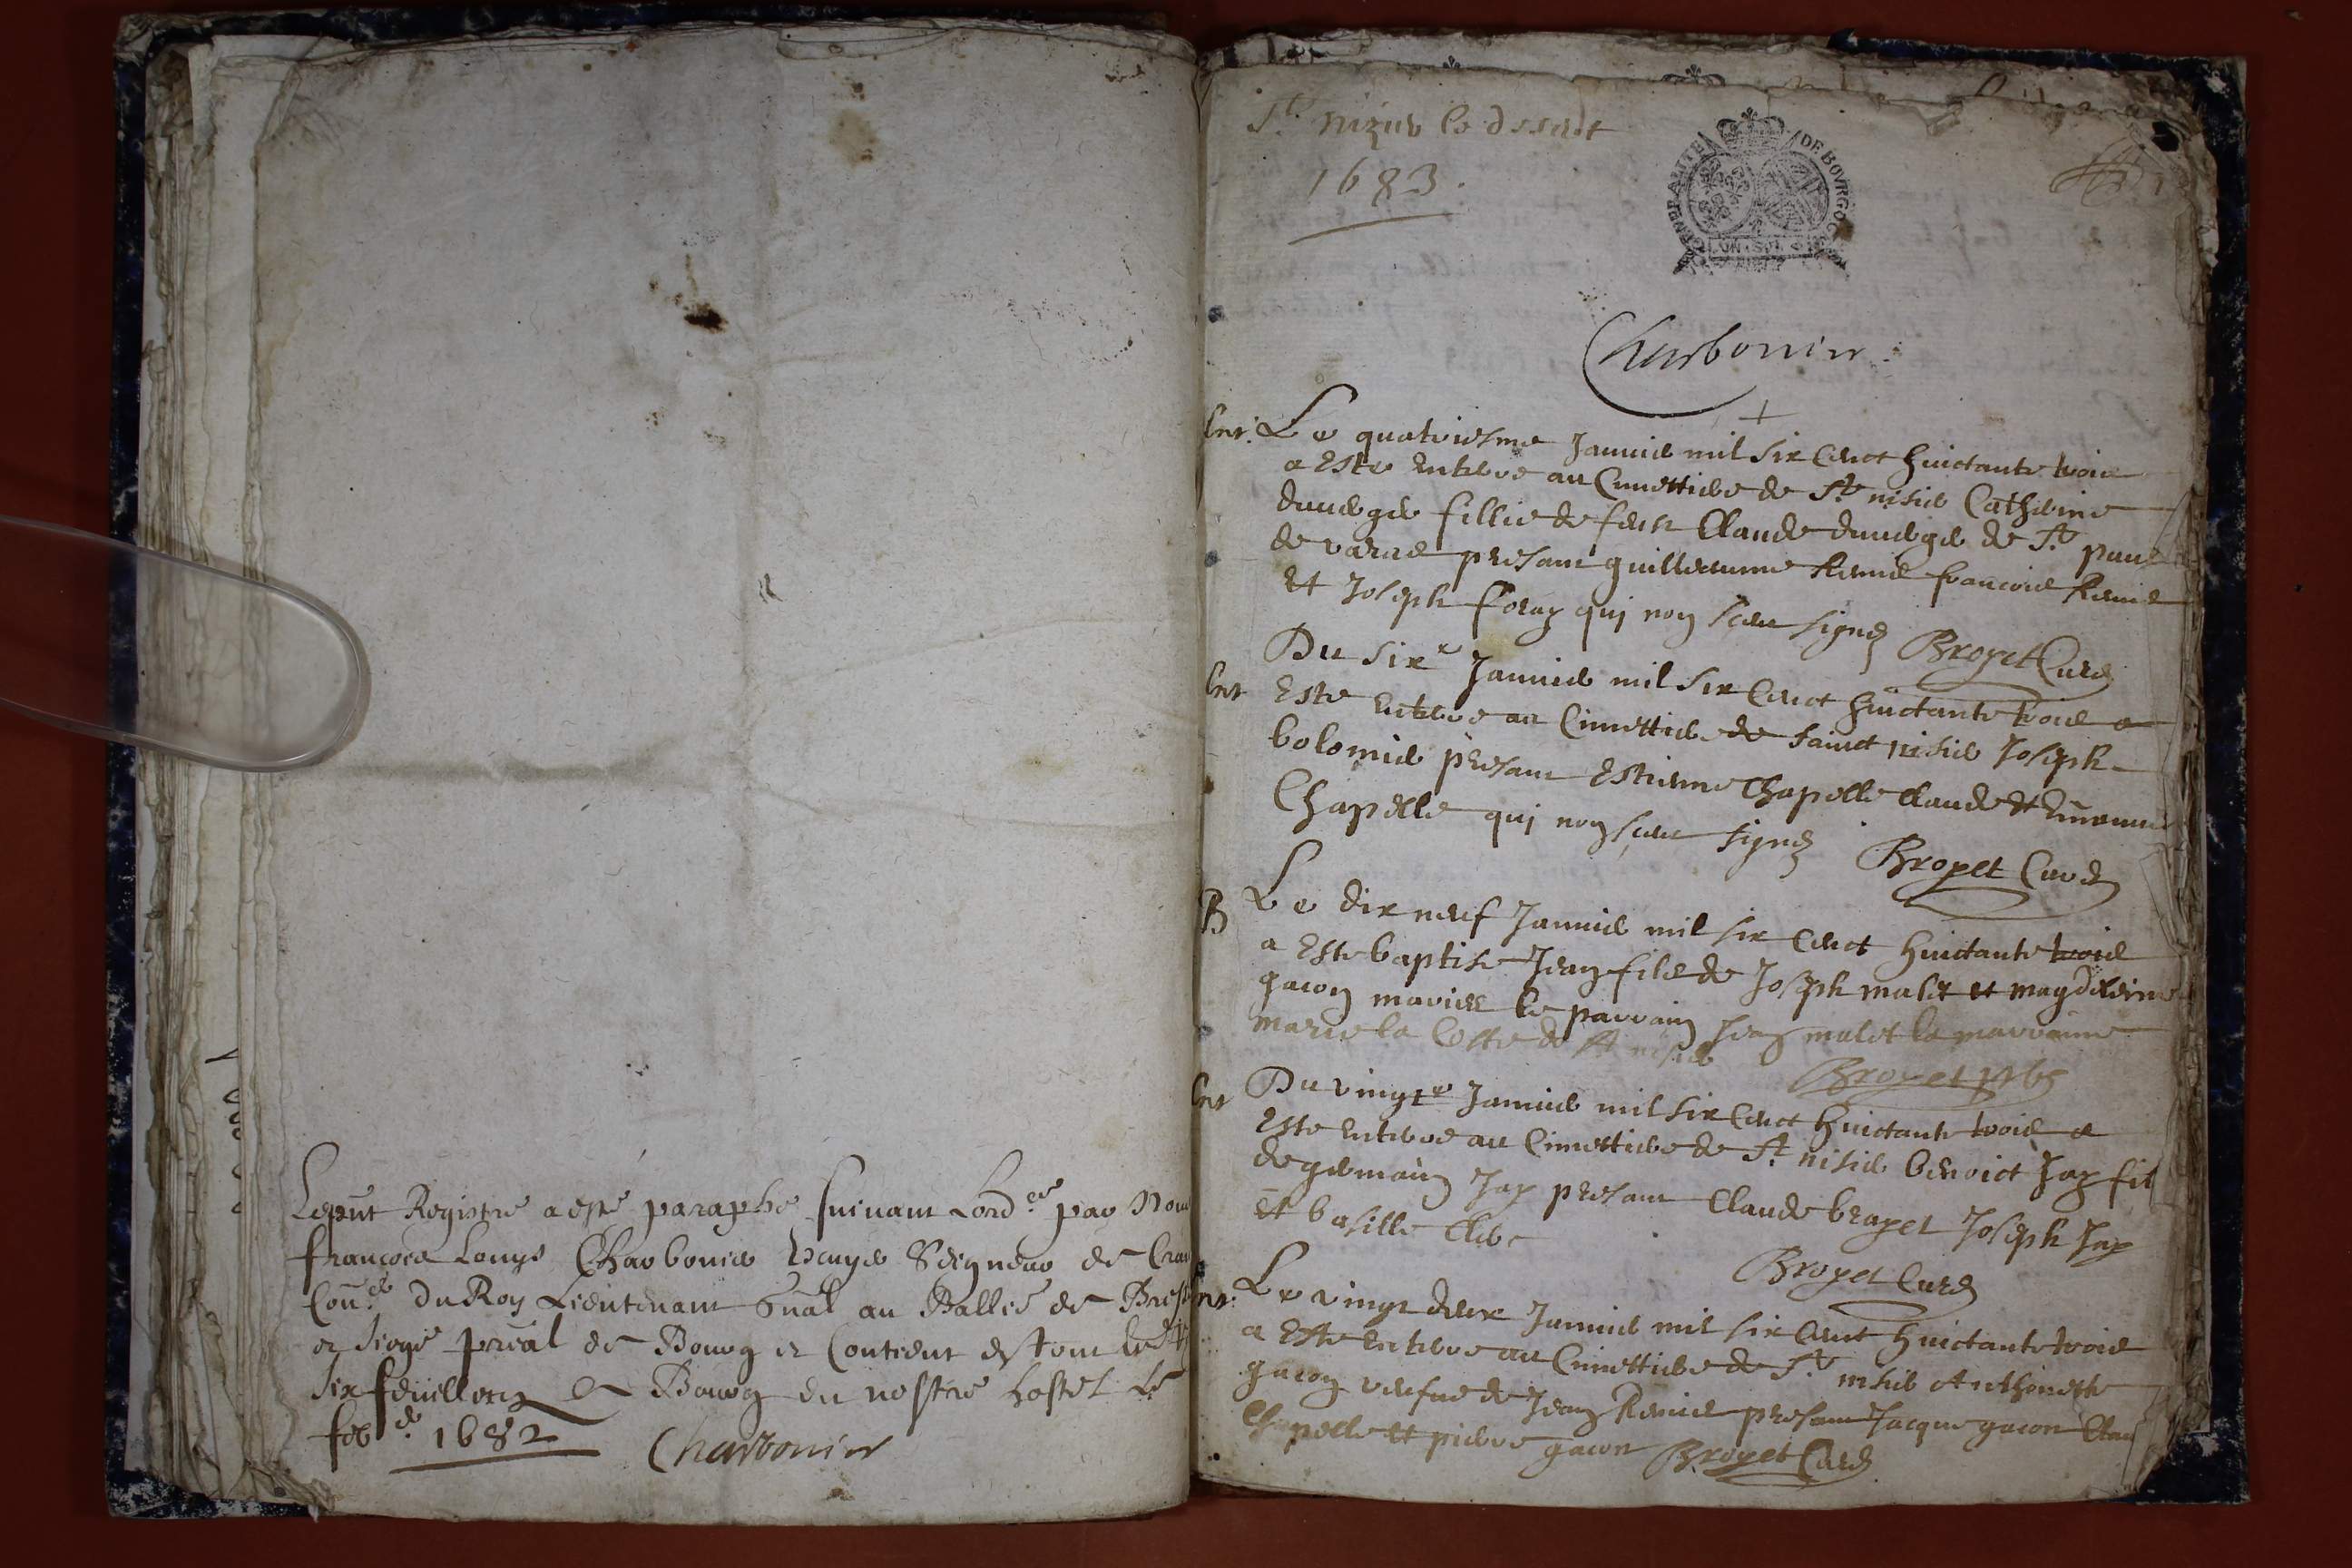 Le pñt Registre a esté paraphé suivant Lord.ce par Nou
françois Louys Charbonier Seigneur de Cra
Con.er Du Roy Lieutenant Gnãl au Balliè de Bress
et siege preãl de Bourg et Contient en tout
six feuillets A Bourg en nostre hostel Le
feb.er 1682 Charbonier
St. nizier le desert
1683.
GENERALITE DE BOVRGO
UN SOL
Charbonier
Ent: Le quatriesme Janvier mil six Cent huictante trois
a Esté Enterre au Cimettiere de St nisier Catherine
duverger fillie de feu Claude duverger de St paul
de varas presant guillaume Renud francois Renud
Et Joseph foray qui non sceu signer Broyet Curé
Ent Du six.e Janvier mil six Cent huictante trois a
Esté Enterre au Cimettiere de sainct nisier Joseph
bolomier presant Estienne Chapelle Claude Et
Chapelle qui non sceu signer Broyet Curé
B Le dix neuf Janvier mil six Cent huictante trois
a Esté baptisé Jean fils de Joseph malet et magdeleine
gacon mariés le parrain Jean malet la marraine
marie la Coste de St nisier Broyet ptbre
Ent Du vingt.e Janvier mil six Cent huictante trois a
Esté Enterre au Cimettiere de St nisier benoict Jay fil
de germain Jay presant Claude brayet Joseph Jay
Et basille Clerc
Broyet Curé
Ent: Le vingt deux Janvier mil six Cent huictante trois
a Esté Enterre au Cimettiere de St nisier Anthoinette
gacon veufue de Jean Renud presant Jacque gacon Clau
Chapelle et pierre gacon Broyet Curé